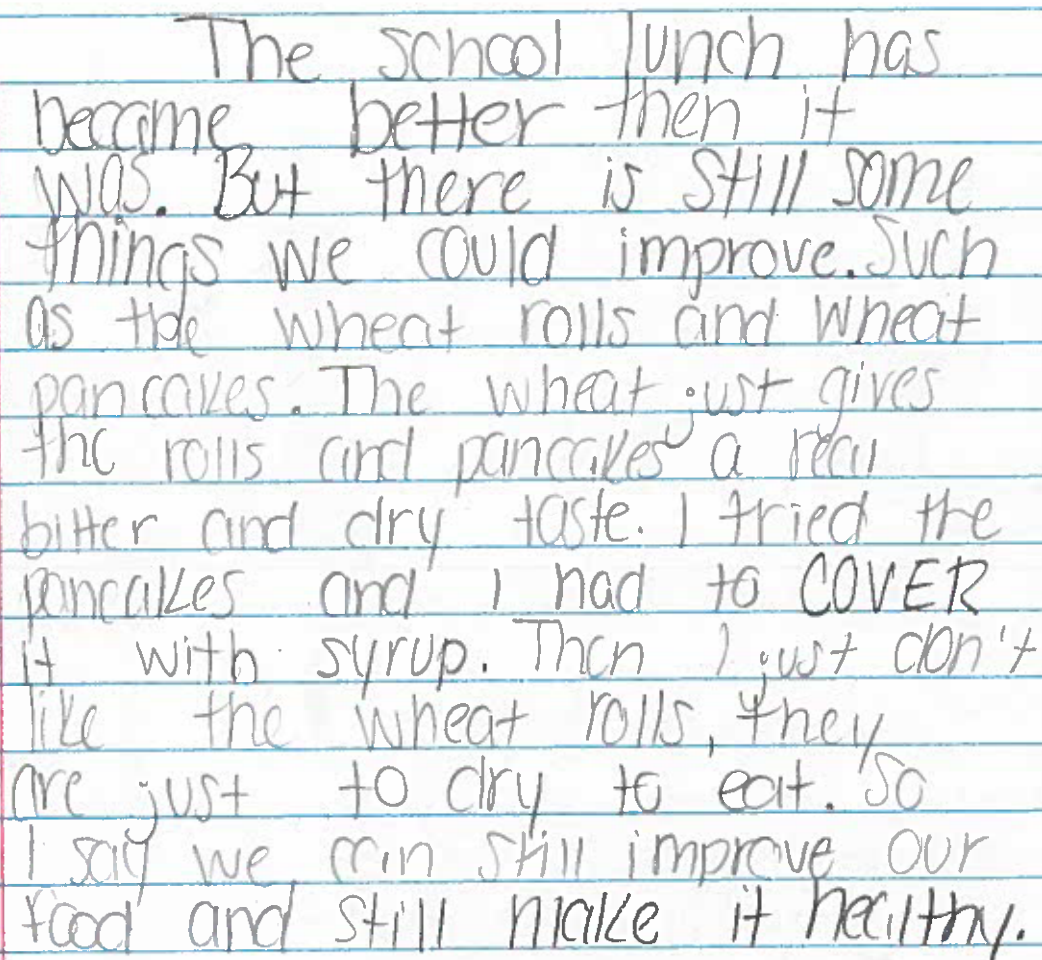 The school lunch has
became better then it
was. But there is still some
things we could improve. Such
as the wheat rolls and wheat
pancakes. The wheat just gives
the rolls and pancakes a real
bitter and dry taste. I tried the
pancakes and I had to COVER
it with syrup. Then I just don't
like the wheat rolls, they
are just to dry to eat. So
I say we can still improve our
food and still make it healthy.